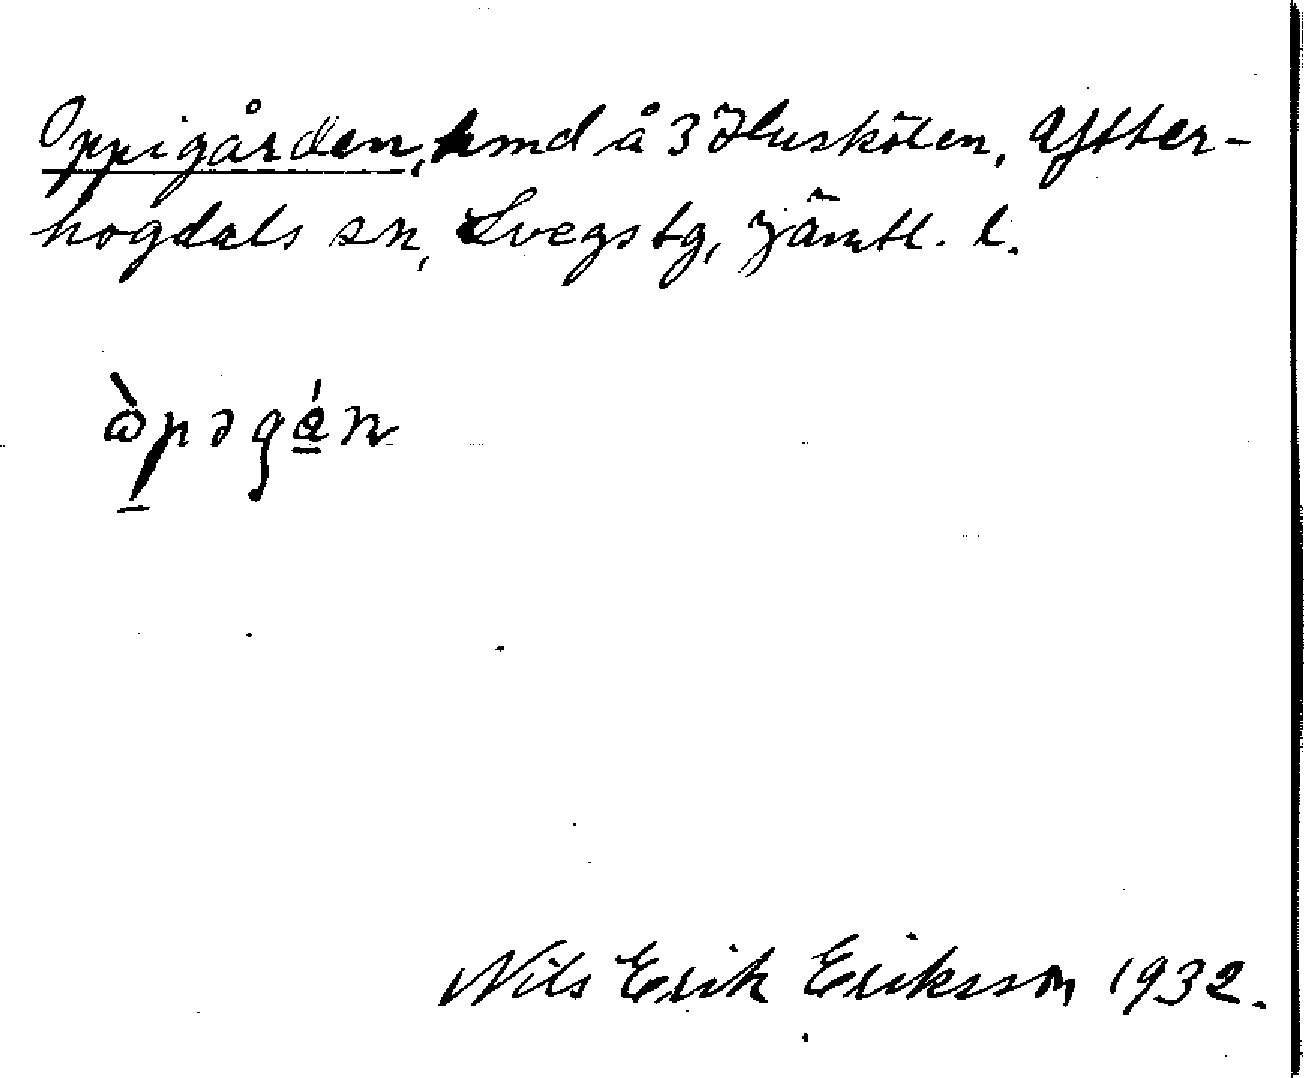 Oppigården, hmd å 3 Huskölen, Ytter-
hogdals sn, Svegs tg, Jämtl. l.
ὼpəgá̱n
Nils Erik Eriksson 1932.